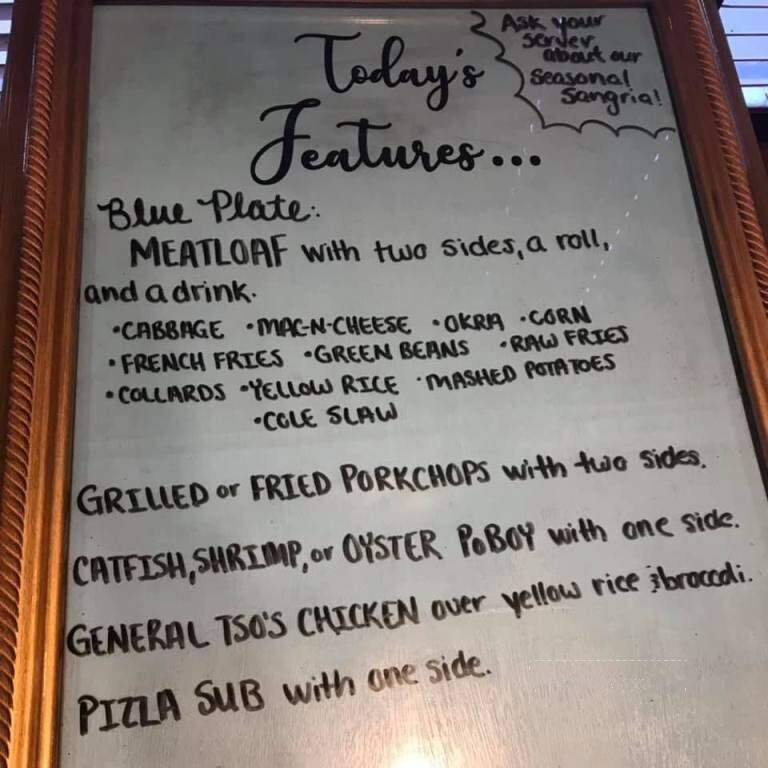 Ask your
server
about our
Seasonal
Sangria!
Today's
Features...
Blue Plate:
MEATLOAF with two sides, a roll,
and a drink.
•CABBAGE •MAC-N-CHEESE •OKRA •CORN
•FRENCH FRIES •GREEN BEANS •RAW FRIES
•COLLARDS •YELLOW RICE •MASHED POTATOES
•COLE SLAW
GRILLED or FRIED PORKCHOPS with two sides.
CATFISH, SHRIMP, or OYSTER PoBOY with one side.
GENERAL TSO'S CHICKEN over yellow rice & broccoli.
PIZZA SUB with one side.